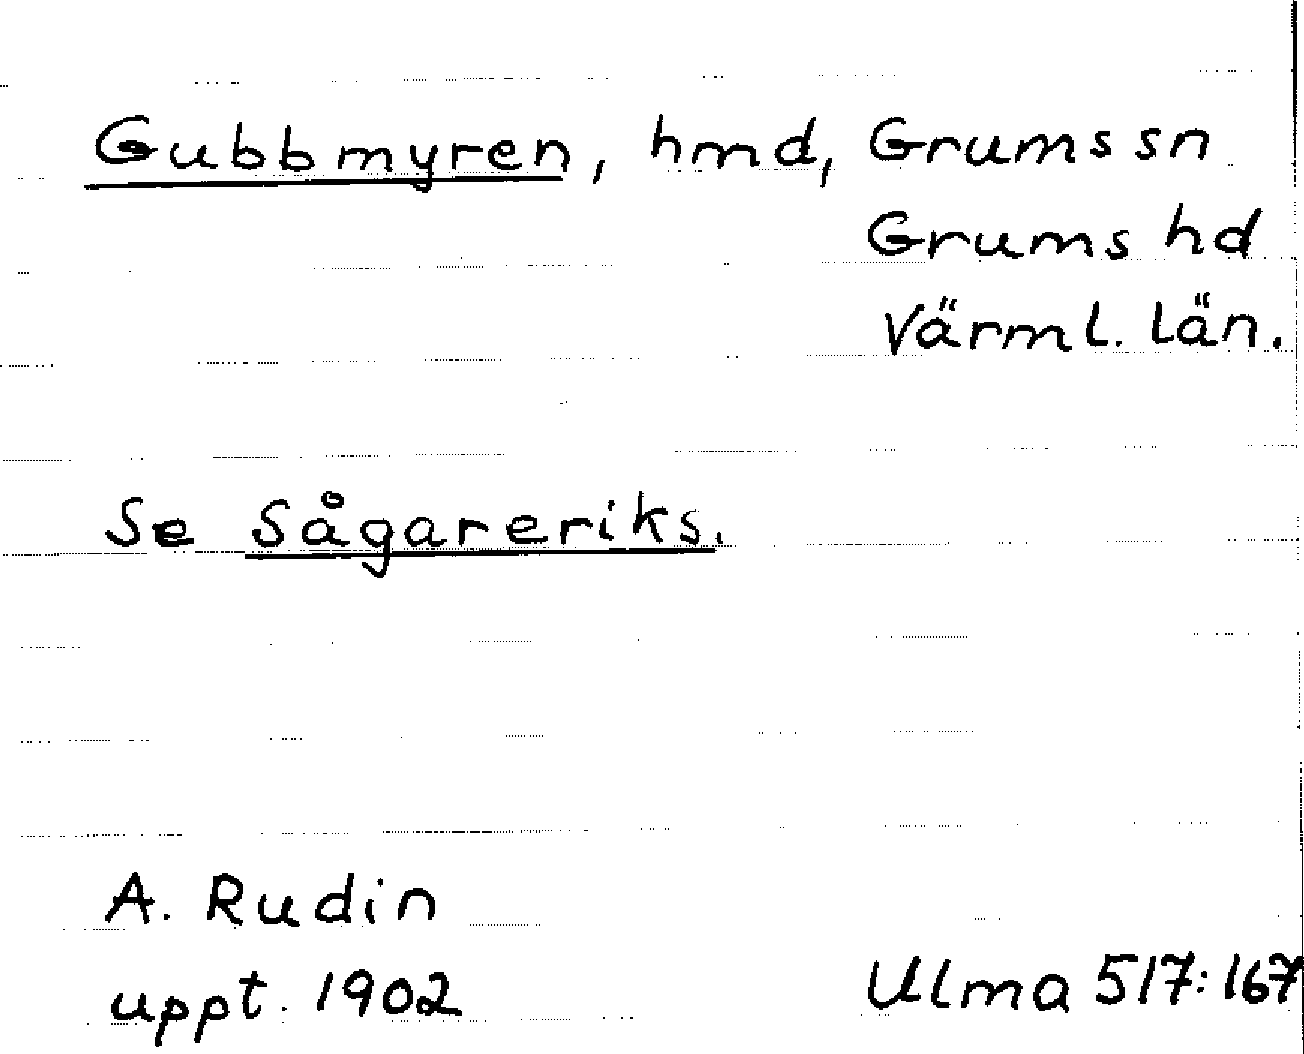 Gubbmyren, hmd, Grums sn
Grums hd
Värml. län.
Se Sågareriks.
A. Rudin
uppt. 1902
Ulma 517:167